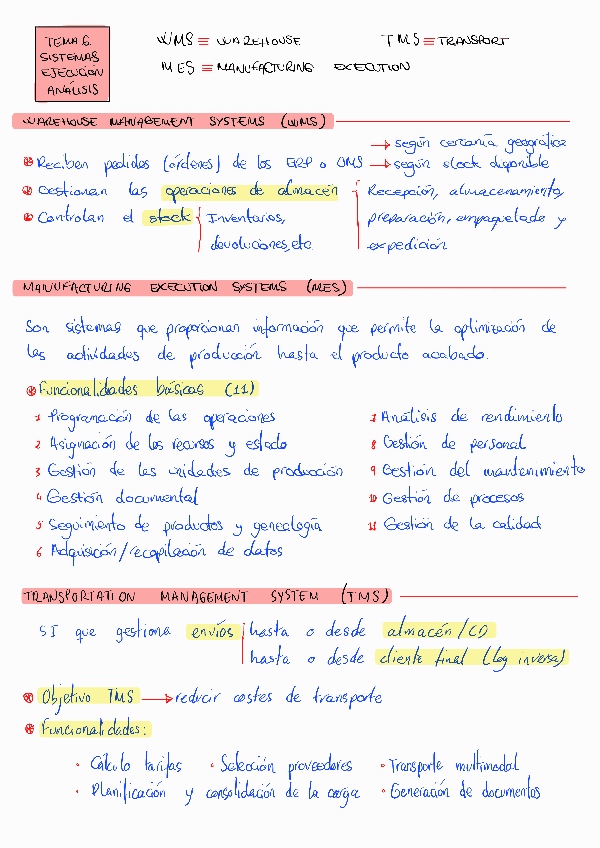 TEMA 6.
SISTEMAS
EJECUCIÓN
ANÁLISIS
WMS ≡ WAREHOUSE
TMS ≡ TRANSPORT
MES ≡ MANUFACTURING EXECUTION
WAREHOUSE MANAGEMENT SYSTEMS (WMS)
→ según cercanía geográfica
Reciben pedidos (órdenes) de los ERP o OMS → según stock disponible
Gestionan las operaciones de almacén { Recepción, almacenamiento,
preparación, empaquetado y
expedición
Controlan el stock { Inventarios,
devoluciones, etc
MANUFACTURING EXECUTION SYSTEMS (MES)
Son sistemas que proporcionan información que permite la optimización de
las actividades de producción hasta el producto acabado.
Funcionalidades básicas (11)
1 Programación de las operaciones
2 Asignación de los recursos y estado
3 Gestión de las unidades de producción
4 Gestión documental
5 Seguimiento de productos y genealogía
6 Adquisición/recopilación de datos
7 Análisis de rendimiento
8 Gestión de personal
9 Gestión del mantenimiento
10 Gestión de procesos
11 Gestión de la calidad
TRANSPORTATION MANAGEMENT SYSTEM (TMS)
SI que gestiona envíos hasta o desde almacén/CD
hasta o desde cliente final (log inversa)
Objetivo TMS → reducir costes de transporte
Funcionalidades:
· Cálculo tarifas · Selección proveedores · Transporte multimodal
· Planificación y consolidación de la carga · Generación de documentos